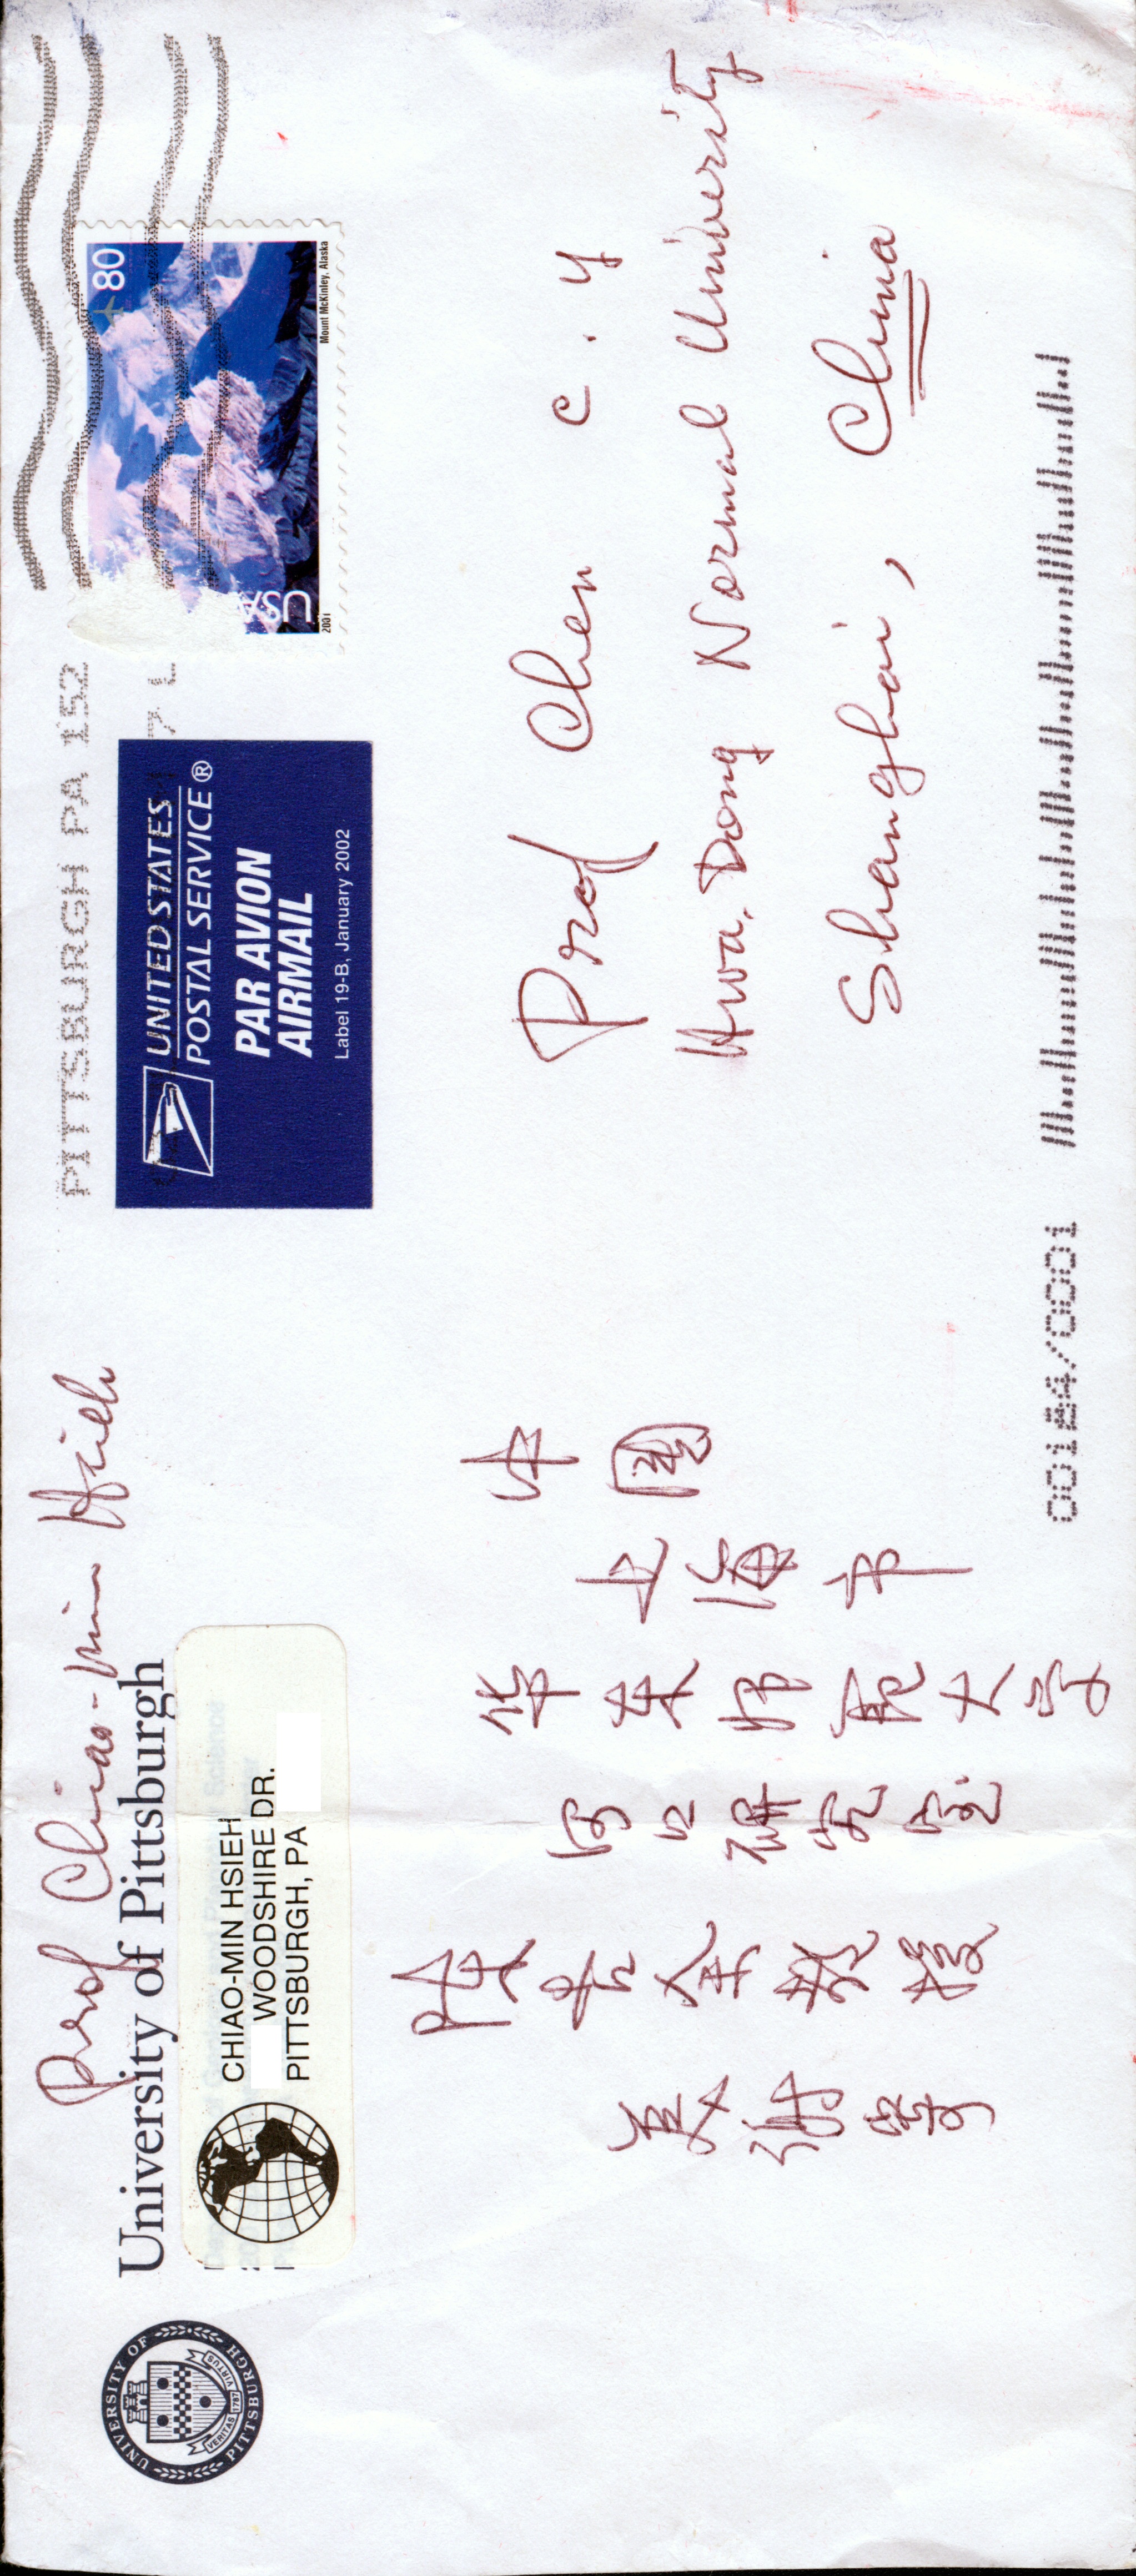 Prof Chiao-Min Hsieh
University of Pittsburgh
UNIVERSITY OF PITTSBURGH
VERITAS 1787 VIRTUS
CHIAO-MIN HSIEH
WOODSHIRE DR.
PITTSBURGH, PA
PITTSBURGH PA 152
UNITED STATES
POSTAL SERVICE®
PAR AVION
AIRMAIL
Label 19-B, January 2002
80
USA
2001
Mount McKinley, Alaska
Prof Chen C. Y
Hwa. Dong Normal University
Shanghai, China
中國
上海市
华东师范大学
河口研究室
陈吉余教授
美谢寄